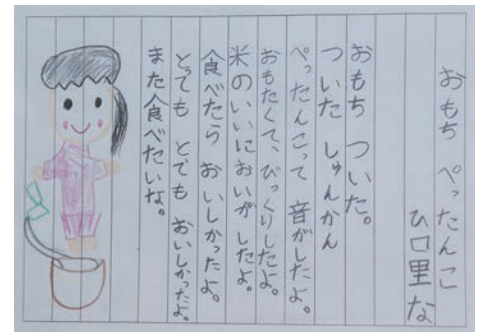 おもち ぺったんこ
ひ口里な
おもち ついた。
ついた しゅんかん
ぺったんこって 音がしたよ。
おもたくて、びっくりしたよ。
米のいいにおいが したよ。
食べたら おいしかったよ。
とっても とても おいしかったよ。
また食べたいな。